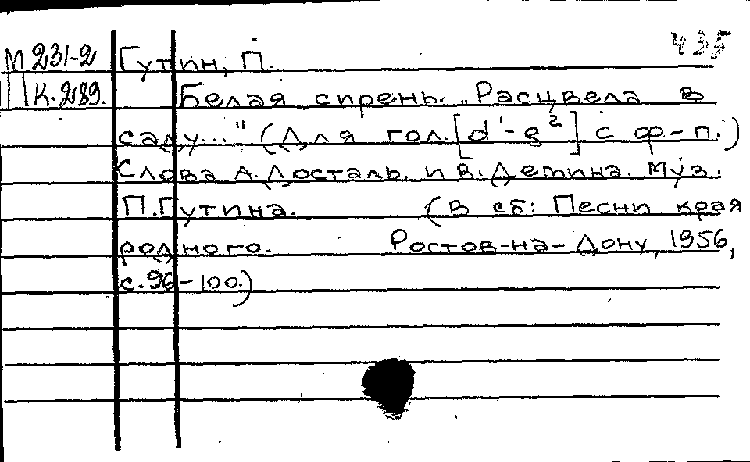 435
М 231-2 Гутин, П.
К.289. Белая сирень. „Расцвела в
саду..." (Для гол. [d¹-g²] с ф-п.)
Слова А. Досталь. и В. Детина. Муз.
П. Гутина. (В сб: Песни края
родного. Ростов-на-Дону, 1956,
с. 96-100.)